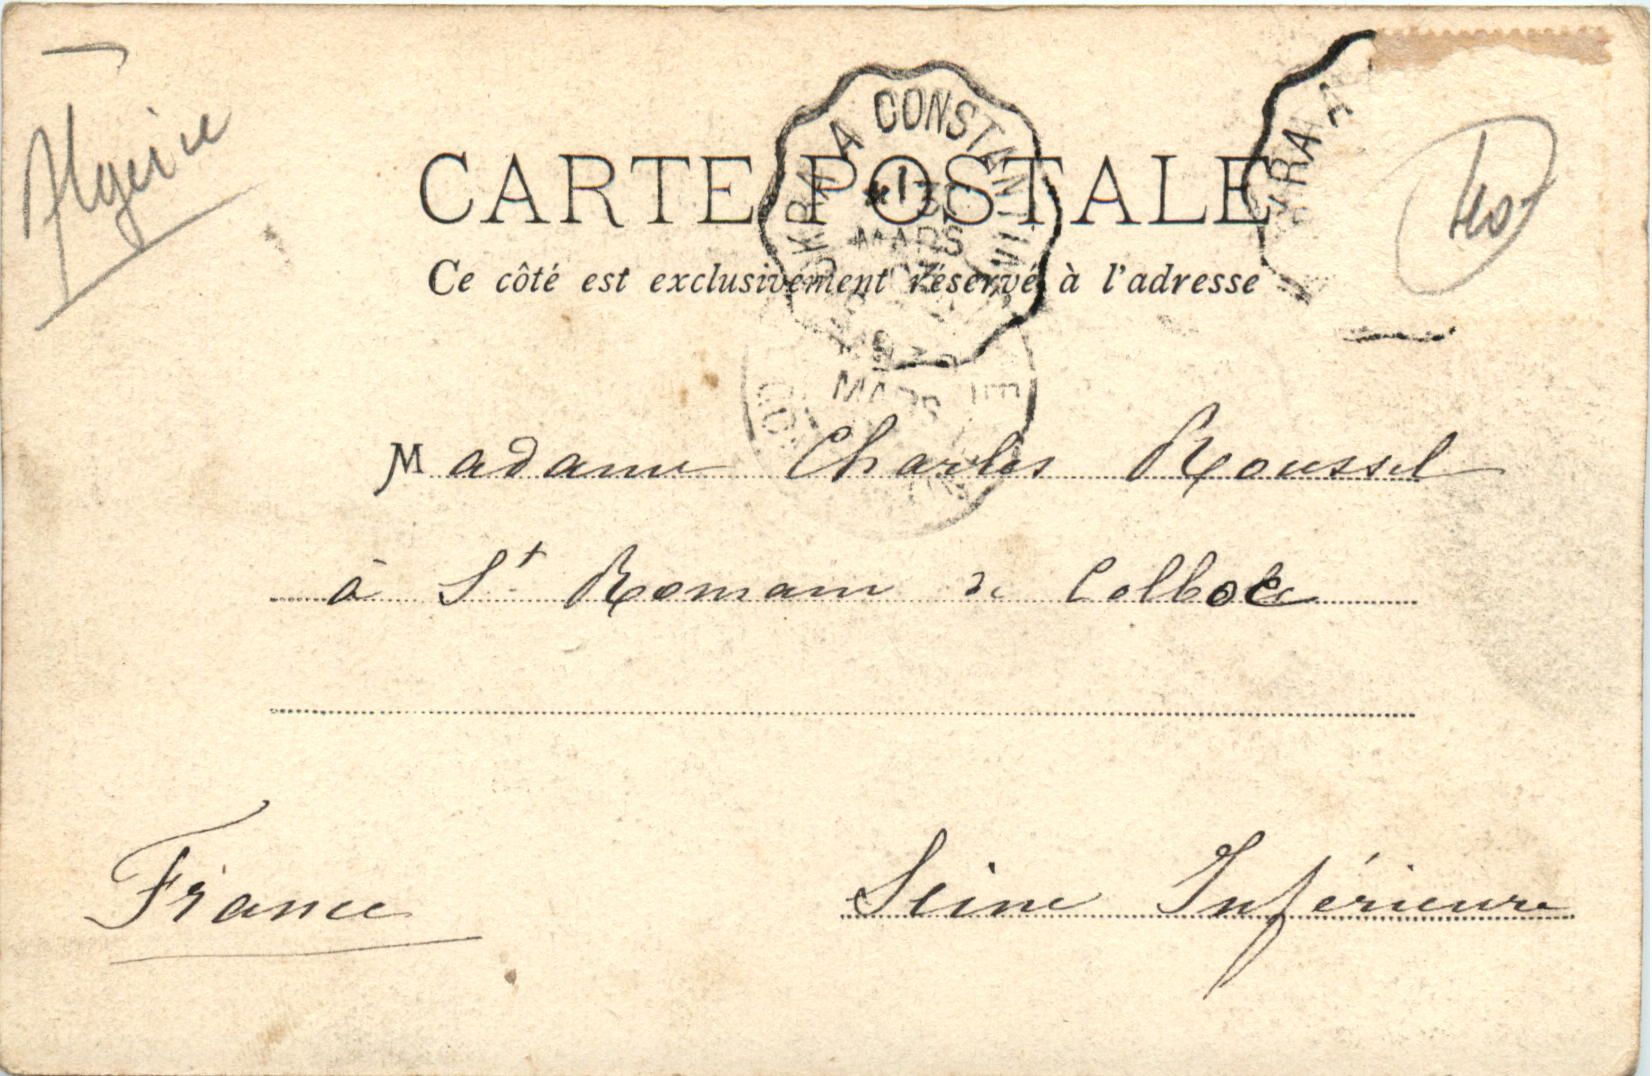 Algérie
CARTE POSTALE
Ce côté est exclusivement réservé à l'adresse
BISKRA A CONSTANTINE
MARS
SKRA A
MARS
Madame Charles Roussel
à St. Romain de Colbosc
France
Seine Inférieure